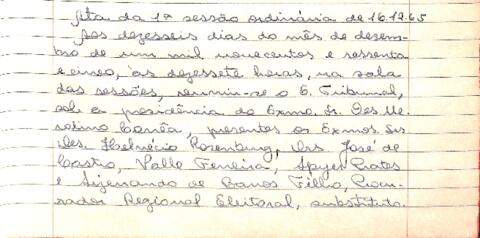 Ata da 1ª sessão ordinária de 16.12.65
Aos dezesseis dias do mês de dezem-
bro de um mil novecentos e sessenta
e cinco, às dezessete horas, na sala
das sessões, reuniu-se o E. Tribunal,
sob a presidência do Exmo. Sr. Des. Me-
rolino Corrêa, presentes os Exmos. Srs.
Des. Helvécio Rosenburg, Drs. José de
Castro, Valle Ferreira, Spyer Prates
e Sizenando de Barros Filho, Procu-
rador Regional Eleitoral, substituto.